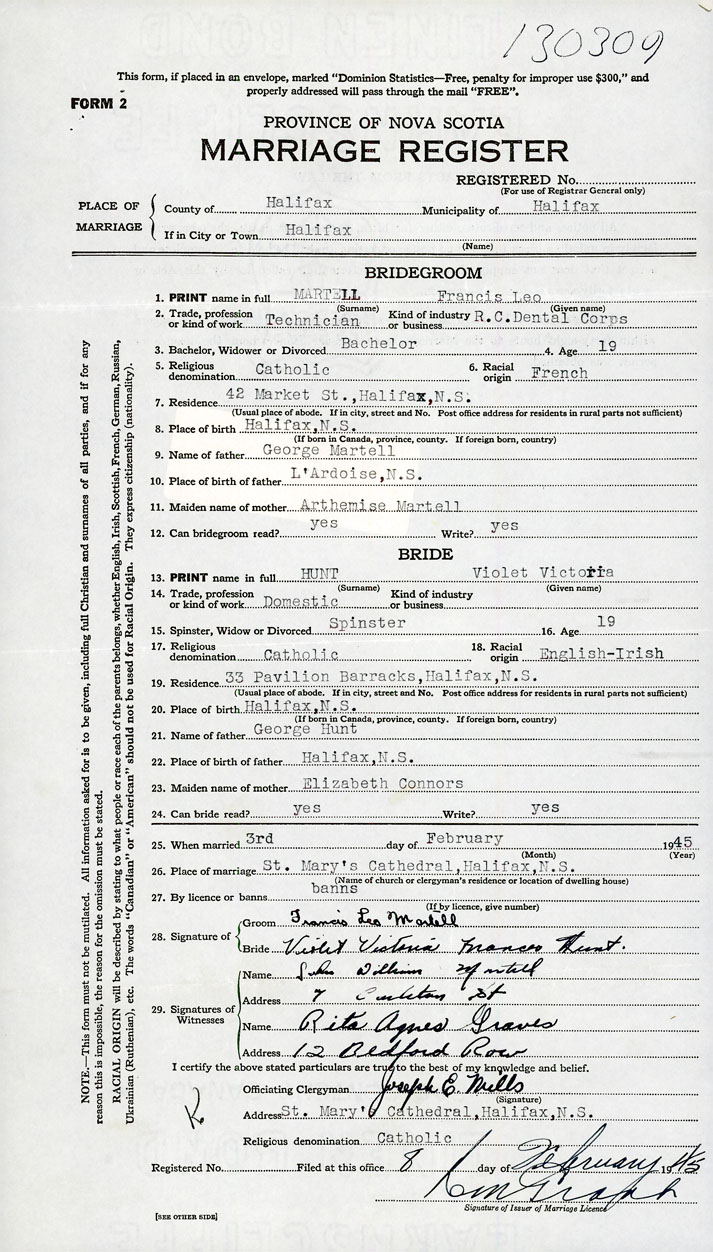 130309
This form, if placed in an envelope, marked "Dominion Statistics—Free, penalty for improper use $300," and
properly addressed will pass through the mail "FREE".
FORM 2
PROVINCE OF NOVA SCOTIA
MARRIAGE REGISTER
REGISTERED No.
(For use of Registrar General only)
PLACE OF MARRIAGE
County of Halifax Municipality of Halifax
If in City or Town Halifax
(Name)
BRIDEGROOM
1. PRINT name in full MARTELL Francis Leo
(Surname) (Given name)
2. Trade, profession or kind of work Technician Kind of industry or business R.C.Dental Corps
3. Bachelor, Widower or Divorced Bachelor 4. Age 19
5. Religious denomination Catholic 6. Racial origin French
7. Residence 42 Market St.,Halifax,N.S.
(Usual place of abode. If in city, street and No. Post office address for residents in rural parts not sufficient)
8. Place of birth Halifax,N.S.
(If born in Canada, province, county. If foreign born, country)
9. Name of father George Martell
10. Place of birth of father L'Ardoise,N.S.
11. Maiden name of mother Arthemise Martell
12. Can bridegroom read? yes Write? yes
BRIDE
13. PRINT name in full HUNT Violet Victoria
(Surname) (Given name)
14. Trade, profession or kind of work Domestic Kind of industry or business
15. Spinster, Widow or Divorced Spinster 16. Age 19
17. Religious denomination Catholic 18. Racial origin English-Irish
19. Residence 33 Pavilion Barracks,Halifax,N.S.
(Usual place of abode. If in city, street and No. Post office address for residents in rural parts not sufficient)
20. Place of birth Halifax,N.S.
(If born in Canada, province, county. If foreign born, country)
21. Name of father George Hunt
22. Place of birth of father Halifax,N.S.
23. Maiden name of mother Elizabeth Connors
24. Can bride read? yes Write? yes
25. When married 3rd day of February 1945
(Month) (Year)
26. Place of marriage St. Mary's Cathedral,Halifax,N.S.
(Name of church or clergyman's residence or location of dwelling house)
27. By licence or banns banns
(If by licence, give number)
28. Signature of
Groom Francis Leo Martell
Bride Violet Victoria Frances Hunt.
29. Signatures of Witnesses
Name William
Address 7 Carleton St
Name Rita Agnes Graves
Address 12 Bedford Row
I certify the above stated particulars are true to the best of my knowledge and belief.
Officiating Clergyman Joseph E. Mills
(Signature)
Address St. Mary's Cathedral,Halifax,N.S.
Religious denomination Catholic
Registered No. Filed at this office 8 day of February 1945
Signature of Issuer of Marriage Licence
[SEE OTHER SIDE]
NOTE.—This form must not be mutilated. All information asked for is to be given, including full Christian and surnames of all parties, and if for any
reason this is impossible, the reason for the omission must be stated.
RACIAL ORIGIN will be described by stating to what people or race each of the parents belongs, whether English, Irish, Scottish, French, German, Russian,
Ukrainian (Ruthenian), etc. The words "Canadian" or "American" should not be used for Racial Origin. They express citizenship (nationality).